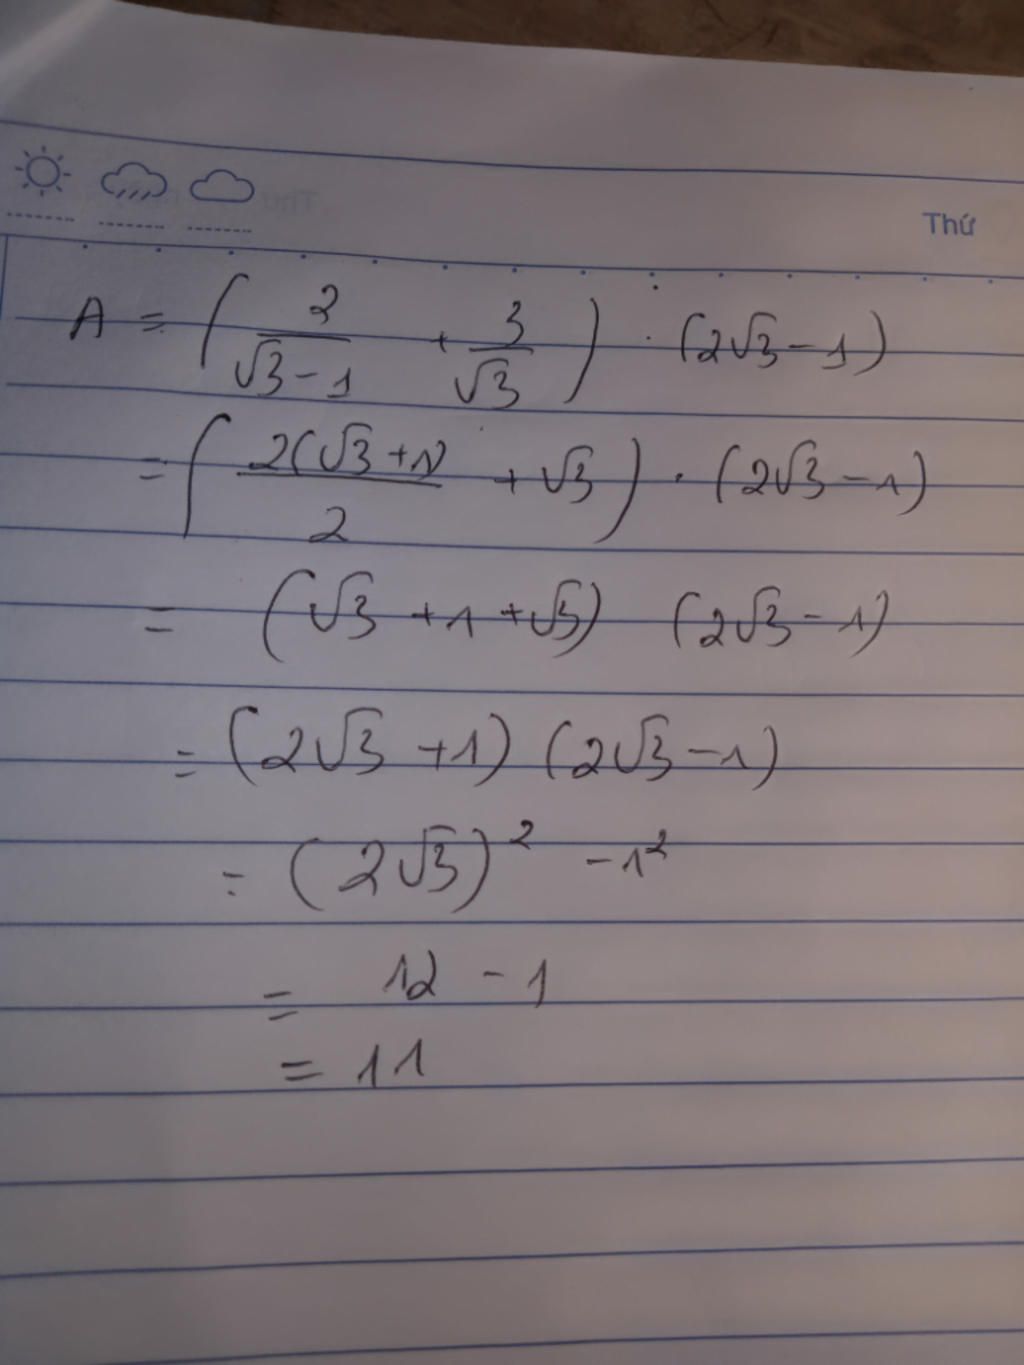 Thứ
A = (2/(√3 - 1) + 3/√3) . (2√3 - 1)
= (2(√3 + 1)/2 + √3) . (2√3 - 1)
= (√3 + 1 + √3) (2√3 - 1)
= (2√3 + 1) (2√3 - 1)
= (2√3)² - 1²
= 12 - 1
= 11